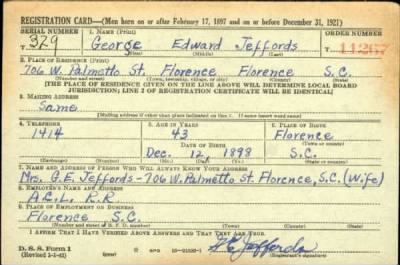 REGISTRATION CARD—(Men born on or after February 17, 1897 and on or before December 31, 1921)
SERIAL NUMBER 1. NAME (Print) ORDER NUMBER
T 329 George Edward Jeffords 11267
(First) (Middle) (Last)
2. PLACE OF RESIDENCE (Print)
706 W. Palmetto St. Florence Florence S.C.
(Number and street) (Town, township, village, or city) (County) (State)
[THE PLACE OF RESIDENCE GIVEN ON THE LINE ABOVE WILL DETERMINE LOCAL BOARD
JURISDICTION; LINE 2 OF REGISTRATION CERTIFICATE WILL BE IDENTICAL]
3. MAILING ADDRESS
Same
[Mailing address if other than place indicated on line 2. If same insert word same]
4. TELEPHONE 5. AGE IN YEARS 6. PLACE OF BIRTH
1414 43 Florence
DATE OF BIRTH (Town or county)
Dec. 12 1898 S.C.
(Exchange) (Number) (Mo.) (Day) (Yr.) (State or country)
7. NAME AND ADDRESS OF PERSON WHO WILL ALWAYS KNOW YOUR ADDRESS
Mrs. G.E. Jeffords-706 W. Palmetto St. Florence, S.C. (Wife)
8. EMPLOYER'S NAME AND ADDRESS
A.C.L. R.R
9. PLACE OF EMPLOYMENT OR BUSINESS
Florence S.C.
(Number and street or R. F. D. number) (Town) (County) (State)
I AFFIRM THAT I HAVE VERIFIED ABOVE ANSWERS AND THAT THEY ARE TRUE.
D. S. S. Form 1
(Revised 1-1-42) GPO Jeffords
(Registrant's signature)